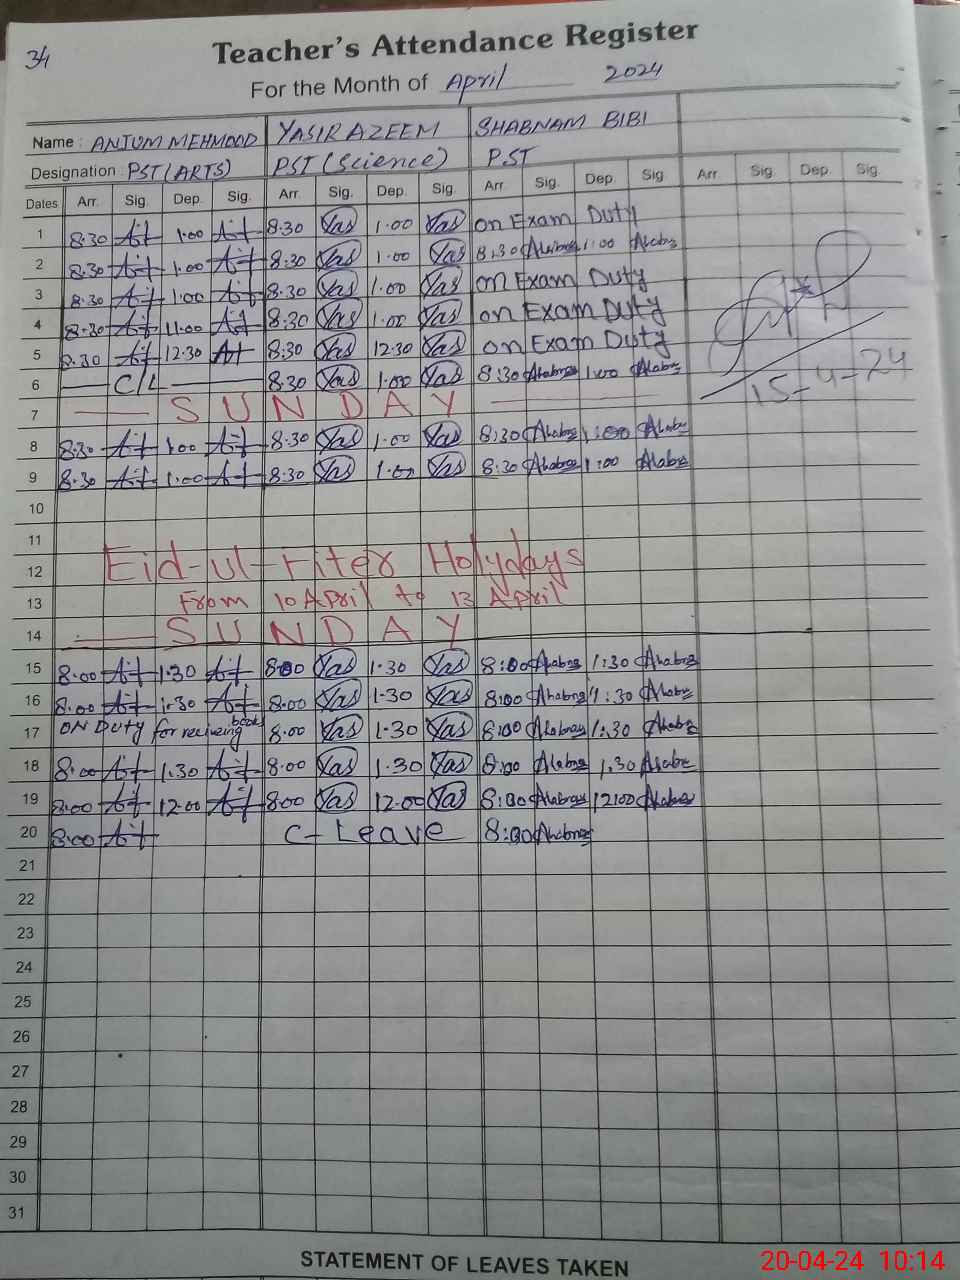 34
Teacher's Attendance Register
For the Month of April 2024
Name : ANJUM MEHMOOD YASIR AZEEM SHABNAM BIBI
Designation : PST(ARTS) PST (Science) P.ST
Dates Arr. Sig. Dep. Sig. Arr. Sig. Dep. Sig. Arr. Sig. Dep. Sig Arr. Sig. Dep. Sig.
1 8.30 1.00 8.30 Yas 1.00 Yas on Exam Duty
2 8.30 1.00 8.30 Yas 1.00 Yas 8:30 1:00
3 8.30 1.00 8.30 Yas 1.00 Yas on Exam Duty
4 8.30 11.00 8.30 Yas 1.00 Yas on Exam Duty
5 8.30 12.30 8.30 Yas 12.30 Yas on Exam Duty
6 C/L 8.30 Yas 1.00 Yas 8:30 1:00
15-4-24
7 SUNDAY
8 8.30 1.00 8.30 Yas 1.00 Yas 8:30 1:00
9 8.30 1.00 8.30 Yas 1.00 Yas 8:30 1:00
10
11
12 Eid-ul-Fiter Holydays
13 From 10 April to 13 April
14 SUNDAY
15 8.00 1.30 8.00 Yas 1.30 Yas 8:00 1:30
16 8.00 1.30 8.00 Yas 1.30 Yas 8:00 1:30
17 ON Duty for reciveing books 8.00 Yas 1.30 Yas 8:00 1:30
18 8.00 1.30 8.00 Yas 1.30 Yas 8:00 1.30
19 8.00 12.00 8.00 Yas 12.00 Yas 8:00 12:00
20 8.00 C-Leave 8:00
21
22
23
24
25
26
27
28
29
30
31
STATEMENT OF LEAVES TAKEN
20-04-24 10:14